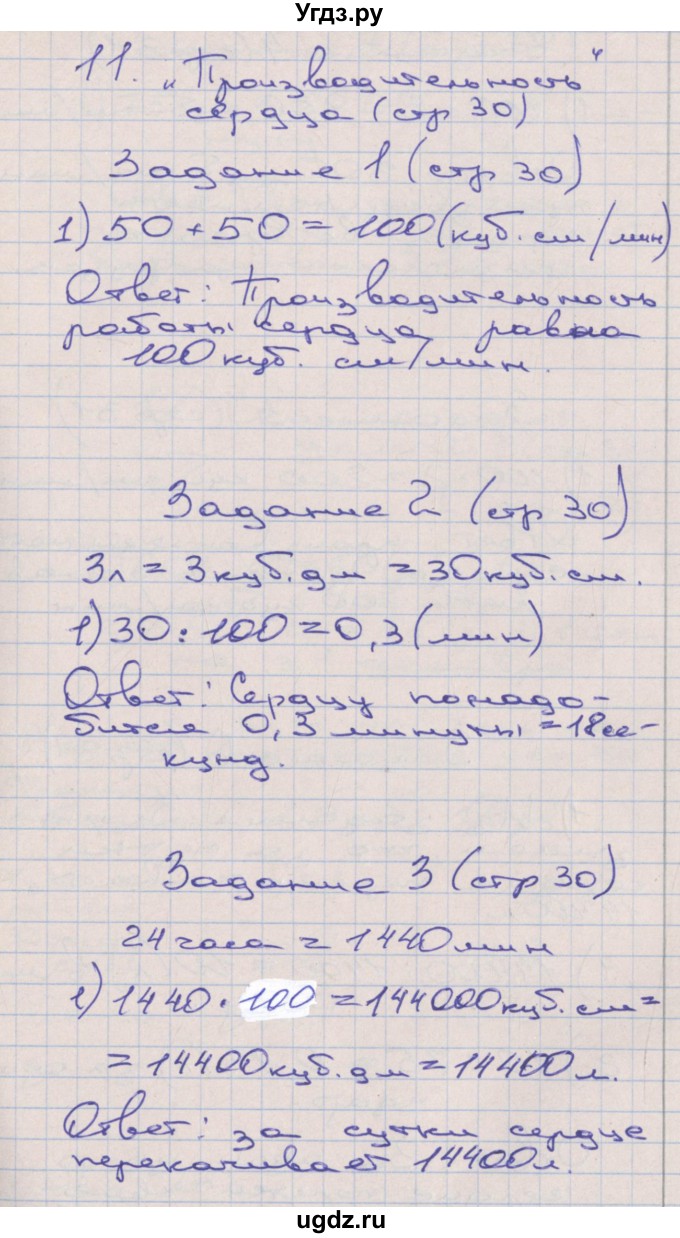 Угдз.ру
11. „Производительность“
сердца (стр 30)
Задание 1 (стр 30)
1) 50 + 50 = 100 (куб. см/мин)
Ответ: Производительность
работы сердца равна
100 куб. см/мин.
Задание 2 (стр 30)
3л = 3 куб. дм = 30 куб. см.
1) 30 : 100 = 0,3 (мин)
Ответ: Сердцу понадо-
бится 0,3 минуты = 18 се-
кунд.
Задание 3 (стр 30)
24 часа = 1440 мин
1) 1440 · 100 = 144000 куб. см =
= 14400 куб. дм = 14400 л.
Ответ: за сутки сердце
перекачивает 14400 л.
ugdz.ru